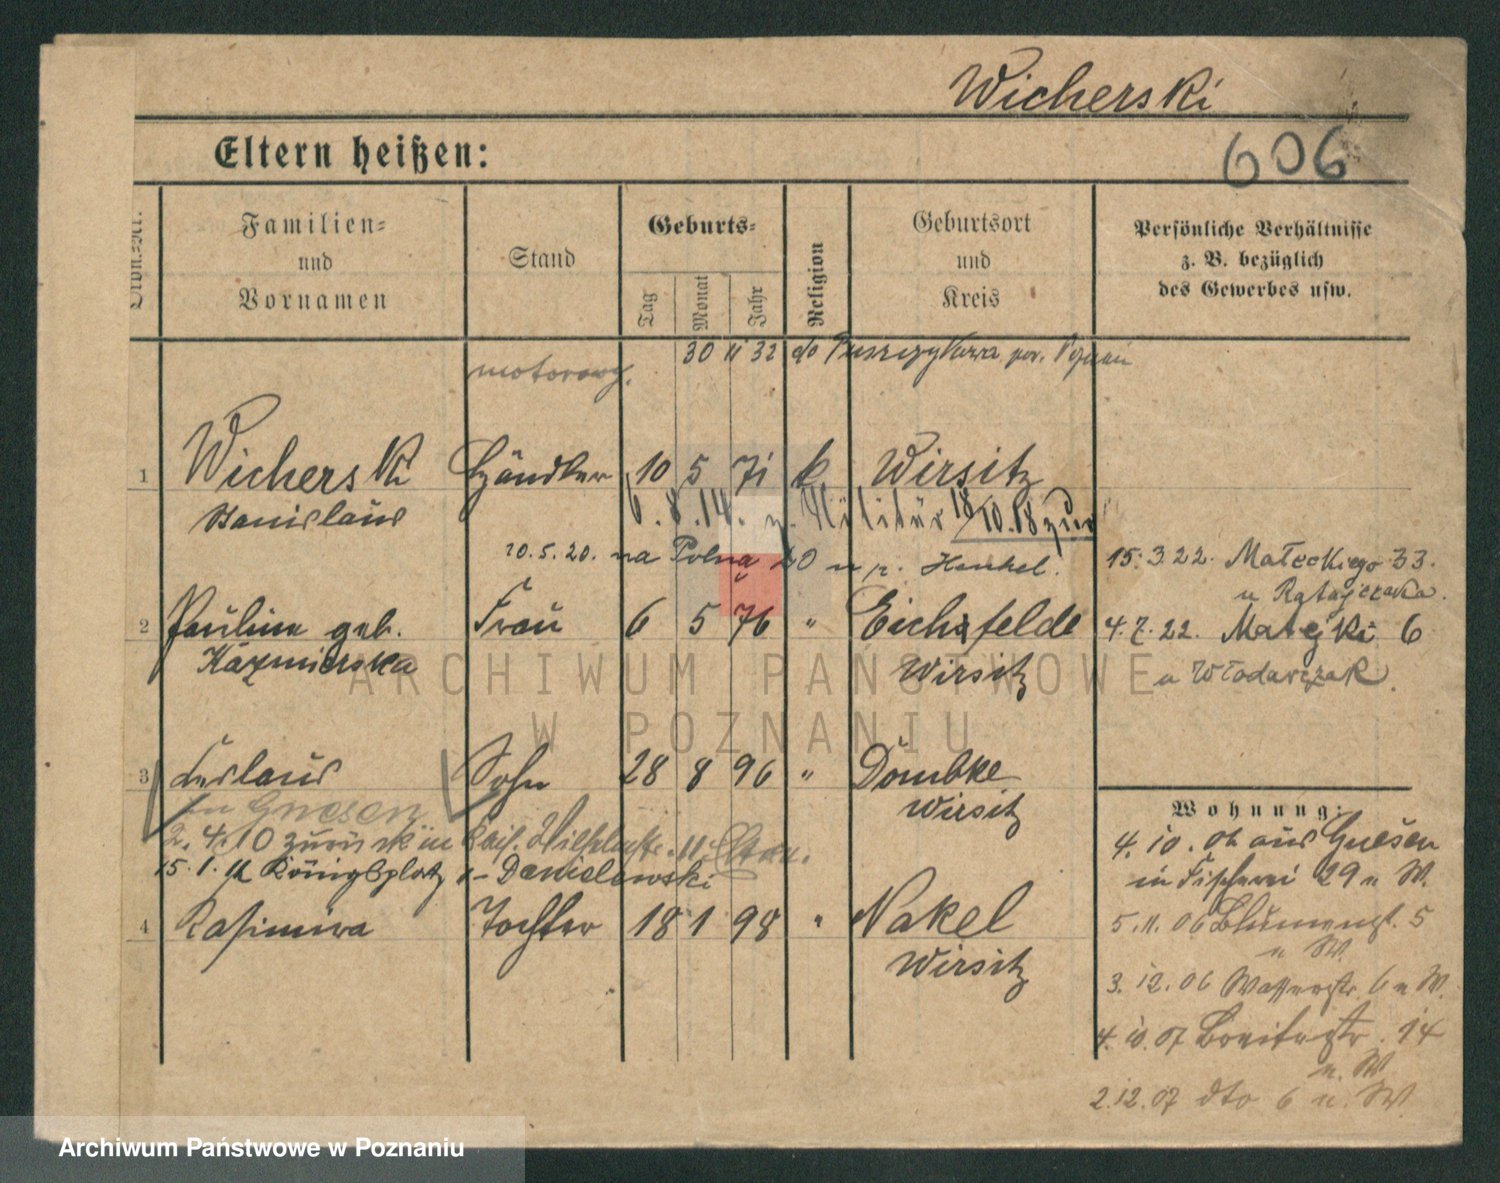 Wicherski
606
Eltern heißen:
Familien-
und
Vornamen
Stand
Geburts-
Tag
Monat
Jahr
Religion
Geburtsort
und
Kreis
Persönliche Verhältnisse
z. B. bezüglich
des Gewerbes usw.
motorowy.
30 11 32 do Puszczykowa pow. Poznań
1 Wicherski Händler 10 5 71 k. Wirsitz
Stanislaus
6.8.14. z. Militär 18/10.18 zur
20.5.20. na Polną 20 u p. Henkel.
15.3.22. Małeckiego 33.
u Ratajczaka.
2 Pauline geb. Frau 6 5 76 " Eichfelde
Kazmierska
Wirsitz
4.7.22. Matejki 6
u Włodarczak.
3 Ceslaus Sohn 28 8 96 " Dombke
Wirsitz
in Gnesen
2.4.10 zurück in
15.1.11 Königsplatz - Danielewski
4 Kasimira Tochter 18 1 98 " Nakel
Wirsitz
Wohnung:
4.10.06 aus Gnesen
in Fischerei 29 u W.
5.11.06 Blumenst. 5
u W.
3.12.06 Wasserstr. 6 u W.
4.10.07 Breitestr. 14
u. W
2.12.07 dto 6 u. W.
ARCHIWUM PAŃSTWOWE
W POZNANIU
Archiwum Państwowe w Poznaniu